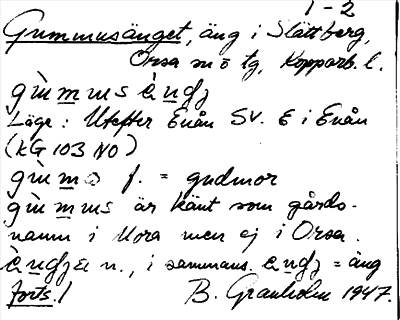 1 - 2
Gummusänget, äng i Slättberg,
Orsa sn o tg, Kopparb. l.
gùmmus èŋgj
Läge: Utefter Enån SV. E i Enån
(KG 103 NO)
gùmə f. = gudmor
gùmmus är känt som gårds-
namn i Mora men ej i Orsa.
n., i sammans. = äng
forts./ B. Granholm 1947.